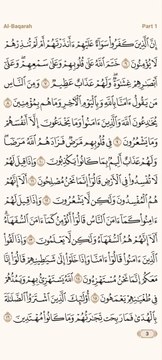 Al-Baqarah Part 1
إِنَّ ٱلَّذِينَ كَفَرُوا۟ سَوَآءٌ عَلَيْهِمْ ءَأَنذَرْتَهُمْ أَمْ لَمْ تُنذِرْهُمْ
لَا يُؤْمِنُونَ ٦ خَتَمَ ٱللَّهُ عَلَىٰ قُلُوبِهِمْ وَعَلَىٰ سَمْعِهِمْ وَعَلَىٰٓ
أَبْصَٰرِهِمْ غِشَٰوَةٌ وَلَهُمْ عَذَابٌ عَظِيمٌ ٧ وَمِنَ ٱلنَّاسِ
مَن يَقُولُ ءَامَنَّا بِٱللَّهِ وَبِٱلْيَوْمِ ٱلْءَاخِرِ وَمَا هُم بِمُؤْمِنِينَ ٨
يُخَٰدِعُونَ ٱللَّهَ وَٱلَّذِينَ ءَامَنُوا۟ وَمَا يَخْدَعُونَ إِلَّآ أَنفُسَهُمْ
وَمَا يَشْعُرُونَ ٩ فِى قُلُوبِهِم مَّرَضٌ فَزَادَهُمُ ٱللَّهُ مَرَضًا
وَلَهُمْ عَذَابٌ أَلِيمٌۢ بِمَا كَانُوا۟ يَكْذِبُونَ ١٠ وَإِذَا قِيلَ لَهُمْ
لَا تُفْسِدُوا۟ فِى ٱلْأَرْضِ قَالُوٓا۟ إِنَّمَا نَحْنُ مُصْلِحُونَ ١١ أَلَآ إِنَّهُمْ
هُمُ ٱلْمُفْسِدُونَ وَلَٰكِن لَّا يَشْعُرُونَ ١٢ وَإِذَا قِيلَ لَهُمْ
ءَامِنُوا۟ كَمَآ ءَامَنَ ٱلنَّاسُ قَالُوٓا۟ أَنُؤْمِنُ كَمَآ ءَامَنَ ٱلسُّفَهَآءُ
أَلَآ إِنَّهُمْ هُمُ ٱلسُّفَهَآءُ وَلَٰكِن لَّا يَعْلَمُونَ ١٣ وَإِذَا لَقُوا۟
ٱلَّذِينَ ءَامَنُوا۟ قَالُوٓا۟ ءَامَنَّا وَإِذَا خَلَوْا۟ إِلَىٰ شَيَٰطِينِهِمْ قَالُوٓا۟ إِنَّا
مَعَكُمْ إِنَّمَا نَحْنُ مُسْتَهْزِءُونَ ١٤ ٱللَّهُ يَسْتَهْزِئُ بِهِمْ وَيَمُدُّهُمْ
فِى طُغْيَٰنِهِمْ يَعْمَهُونَ ١٥ أُو۟لَٰٓئِكَ ٱلَّذِينَ ٱشْتَرَوُا۟ ٱلضَّلَٰلَةَ
بِٱلْهُدَىٰ فَمَا رَبِحَت تِّجَٰرَتُهُمْ وَمَا كَانُوا۟ مُهْتَدِينَ ١٦
3